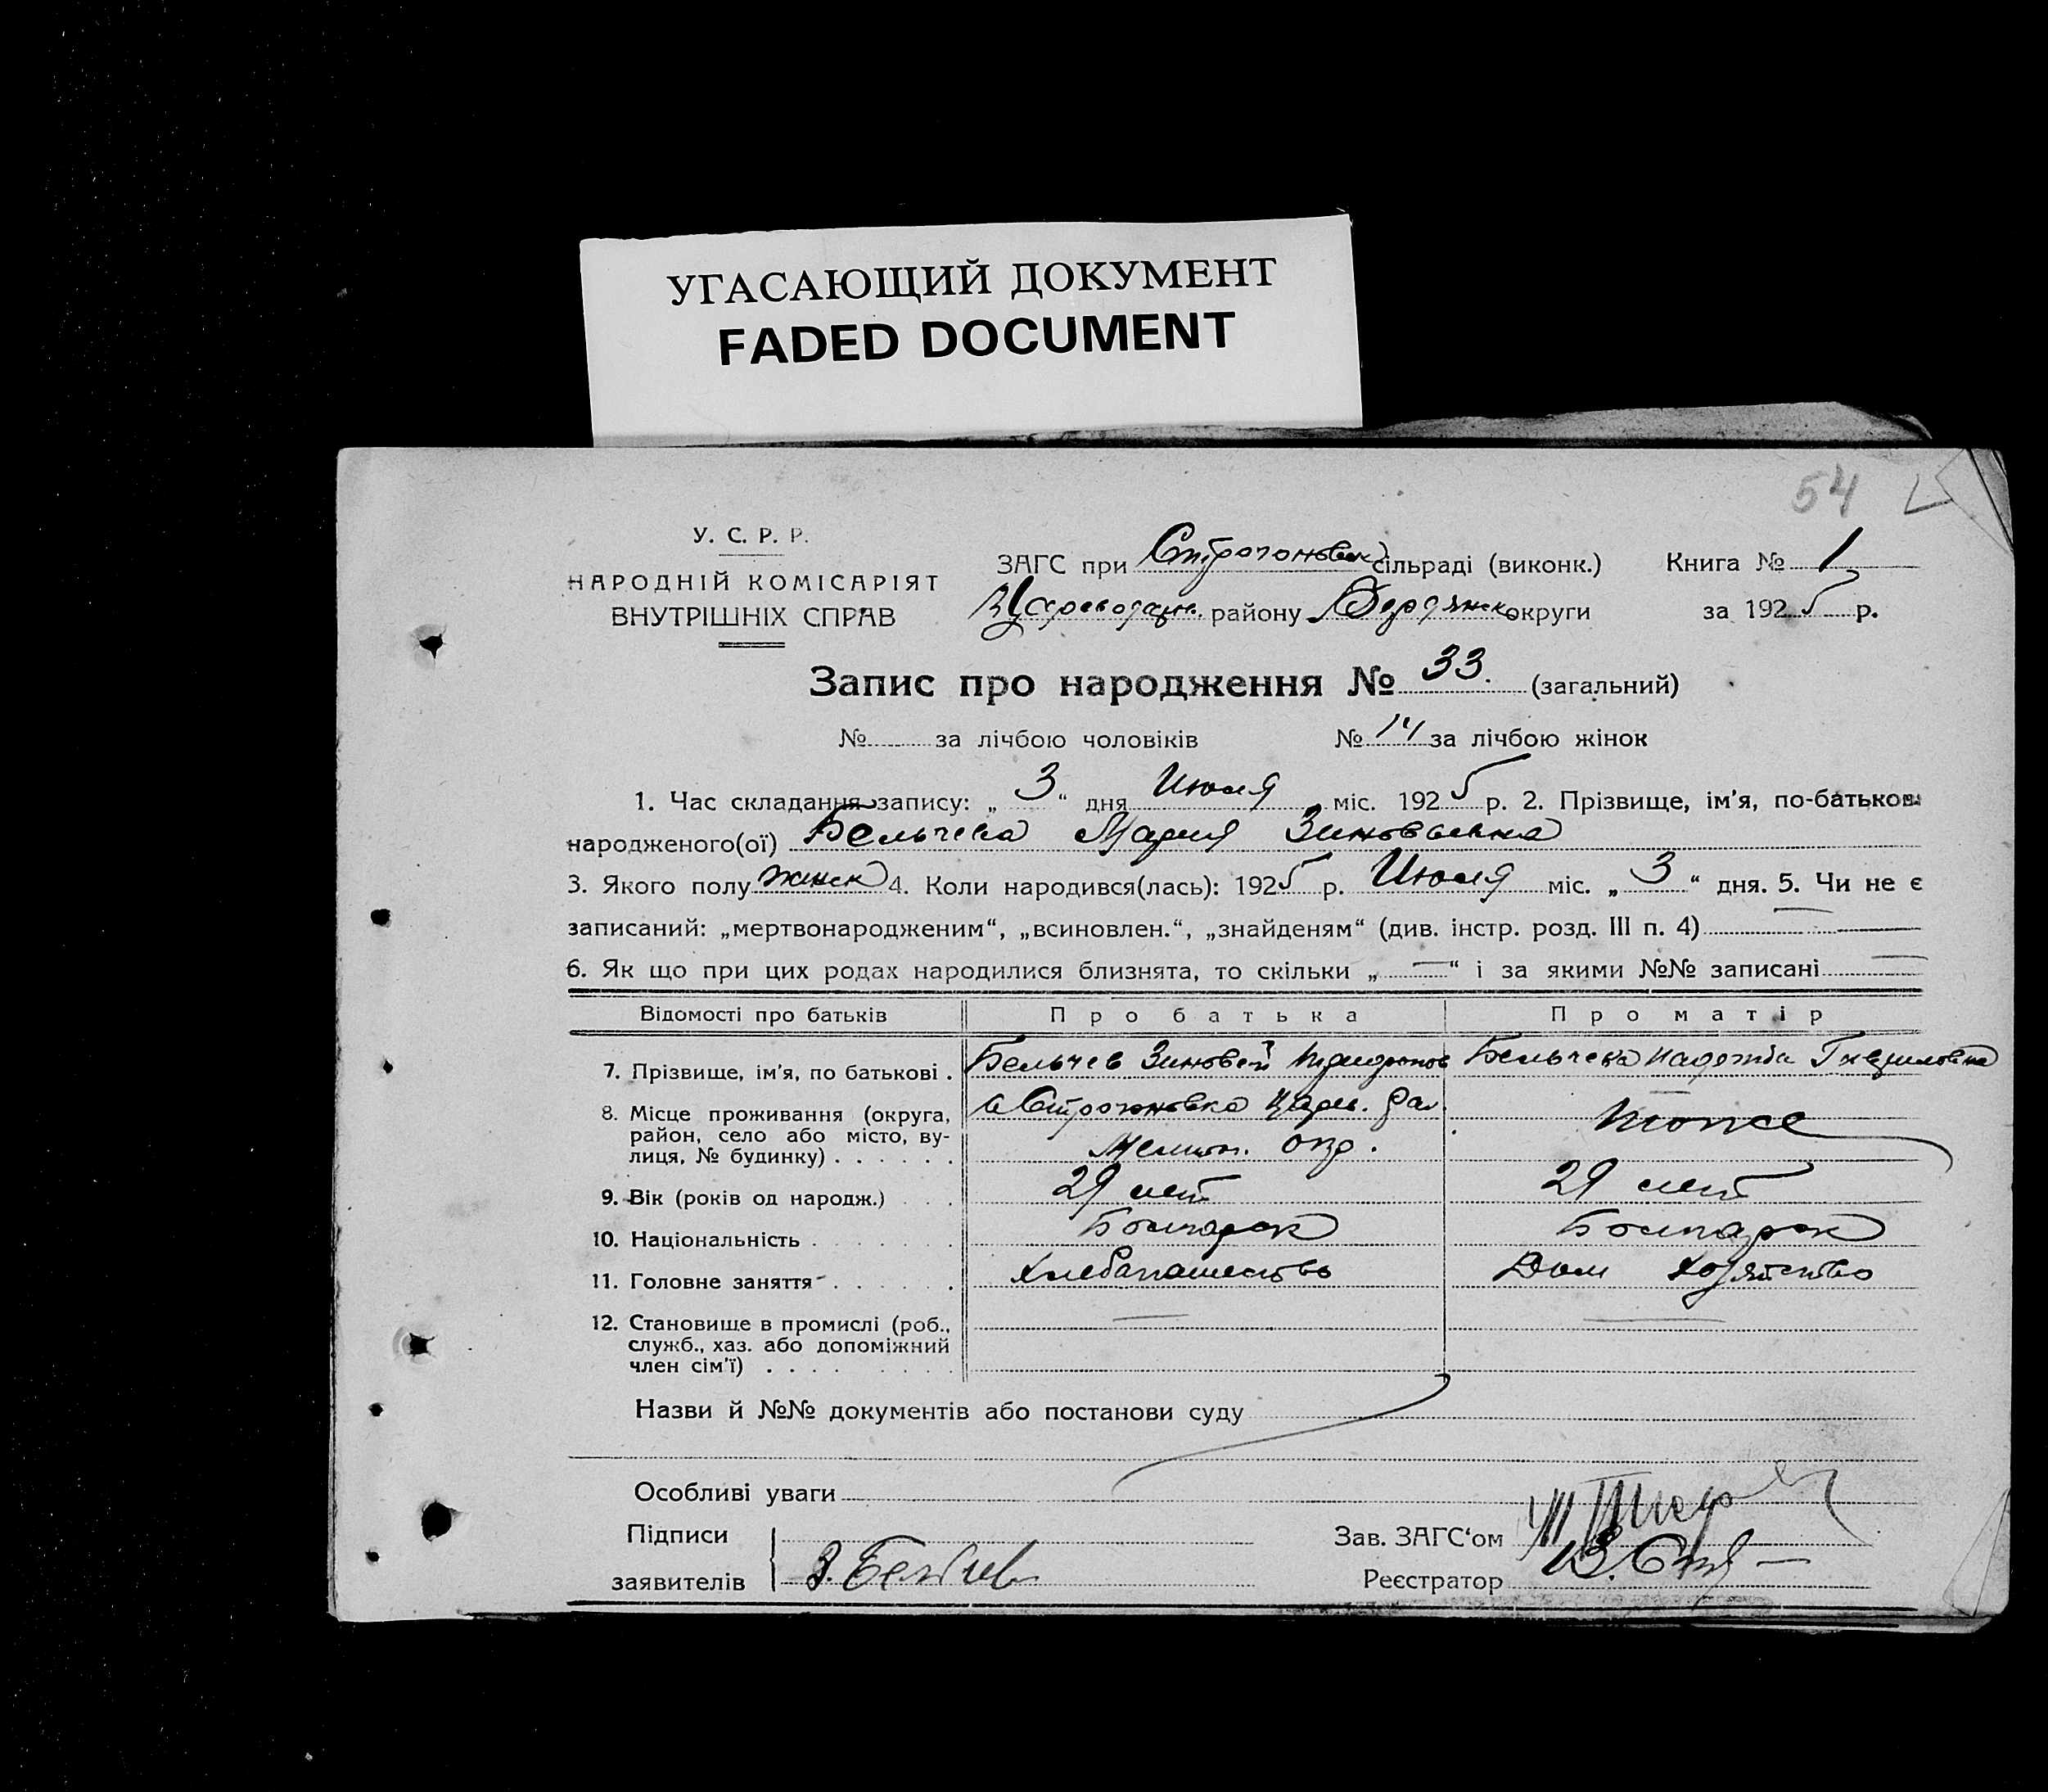 УГАСАЮЩИЙ ДОКУМЕНТ
FADED DOCUMENT
54
У. С. Р. Р.
НАРОДНІЙ КОМІСАРІЯТ
ВНУТРІШНІХ СПРАВ
ЗАГС при Строгоновск сільраді (виконк.) Книга № 1
району Бердянск округи за 1925 р.
Запис про народження № 33. (загальний)
№ за лічбою чоловіків № 14 за лічбою жінок
1. Час складання запису: „ 3 “ дня Июля міс. 1925 р. 2. Прізвище, ім'я, по-батьков
народженого(ої) Бельчева Мария Зиновьевна
3. Якого полу женск 4. Коли народився(лась): 1925 р. Июля міс. „ 3 “ дня. 5. Чи не є
записаний: „мертвонародженим“, „всиновлен.“, „знайденям“ (див. інстр. розд. III п. 4) —
6. Як що при цих родах народилися близнята, то скільки „ — “ і за якими №№ записані —
Відомості про батьків Про батька Про матір
7. Прізвище, ім'я, по батькові . Бельчев Зиновей Бельчева Надежда
8. Місце проживання (округа, район, село або місто, вулиця, № будинку) . . . . . . с Строгоновка Царев. тоже
Мелит. окр.
9. Вік (років од народж.) . . 29 лет 29 лет
10. Національність . . . . . . Болгарск Болгарск
11. Головне заняття . . . . . Хлебопашество Дом хозяйство
12. Становище в промислі (роб., служб., хаз. або допоміжний член сім'ї) . . . . . . . . — —
Назви й №№ документів або постанови суду
Особливі уваги
Підписи
заявителів З. Бельчев
Зав. ЗАГС'ом
Реєстратор